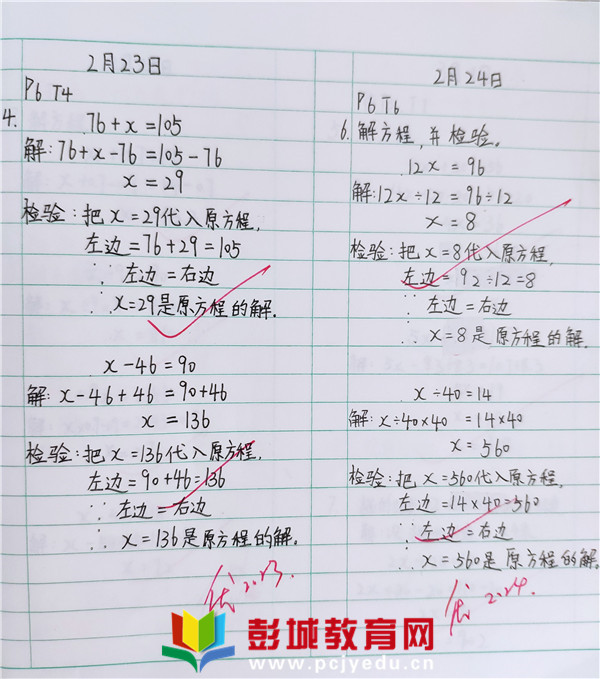 2月23日
P6 T4
4. 76+x=105
解:76+x-76=105-76
x=29
检验:把x=29代入原方程,
左边=76+29=105
∵左边=右边
∴x=29是原方程的解.
x-46=90
解:x-46+46=90+46
x=136
检验:把x=136代入原方程,
左边=90+46=136
∵左边=右边
∴x=136是原方程的解.
优 2.23.
2月24日
P6 T6
6.解方程,并检验。
12x=96
解:12x÷12=96÷12
x=8
检验:把x=8代入原方程,
左边=92÷12=8
∵左边=右边
∴x=8是原方程的解.
x÷40=14
解:x÷40×40=14×40
x=560
检验:把x=560代入原方程,
左边=14×40=560
∵左边=右边
∴x=560是原方程的解。
优 2.24.
彭城教育网
www.pcjyedu.cn